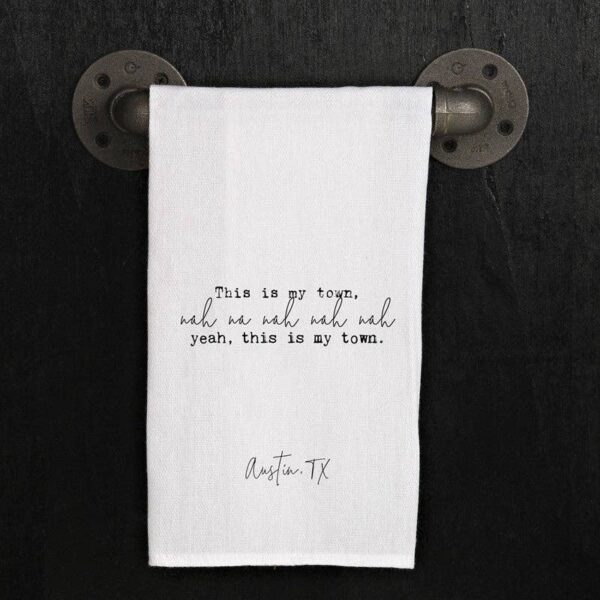 This is my town,
nah na nah nah nah
yeah, this is my town.
Austin, TX